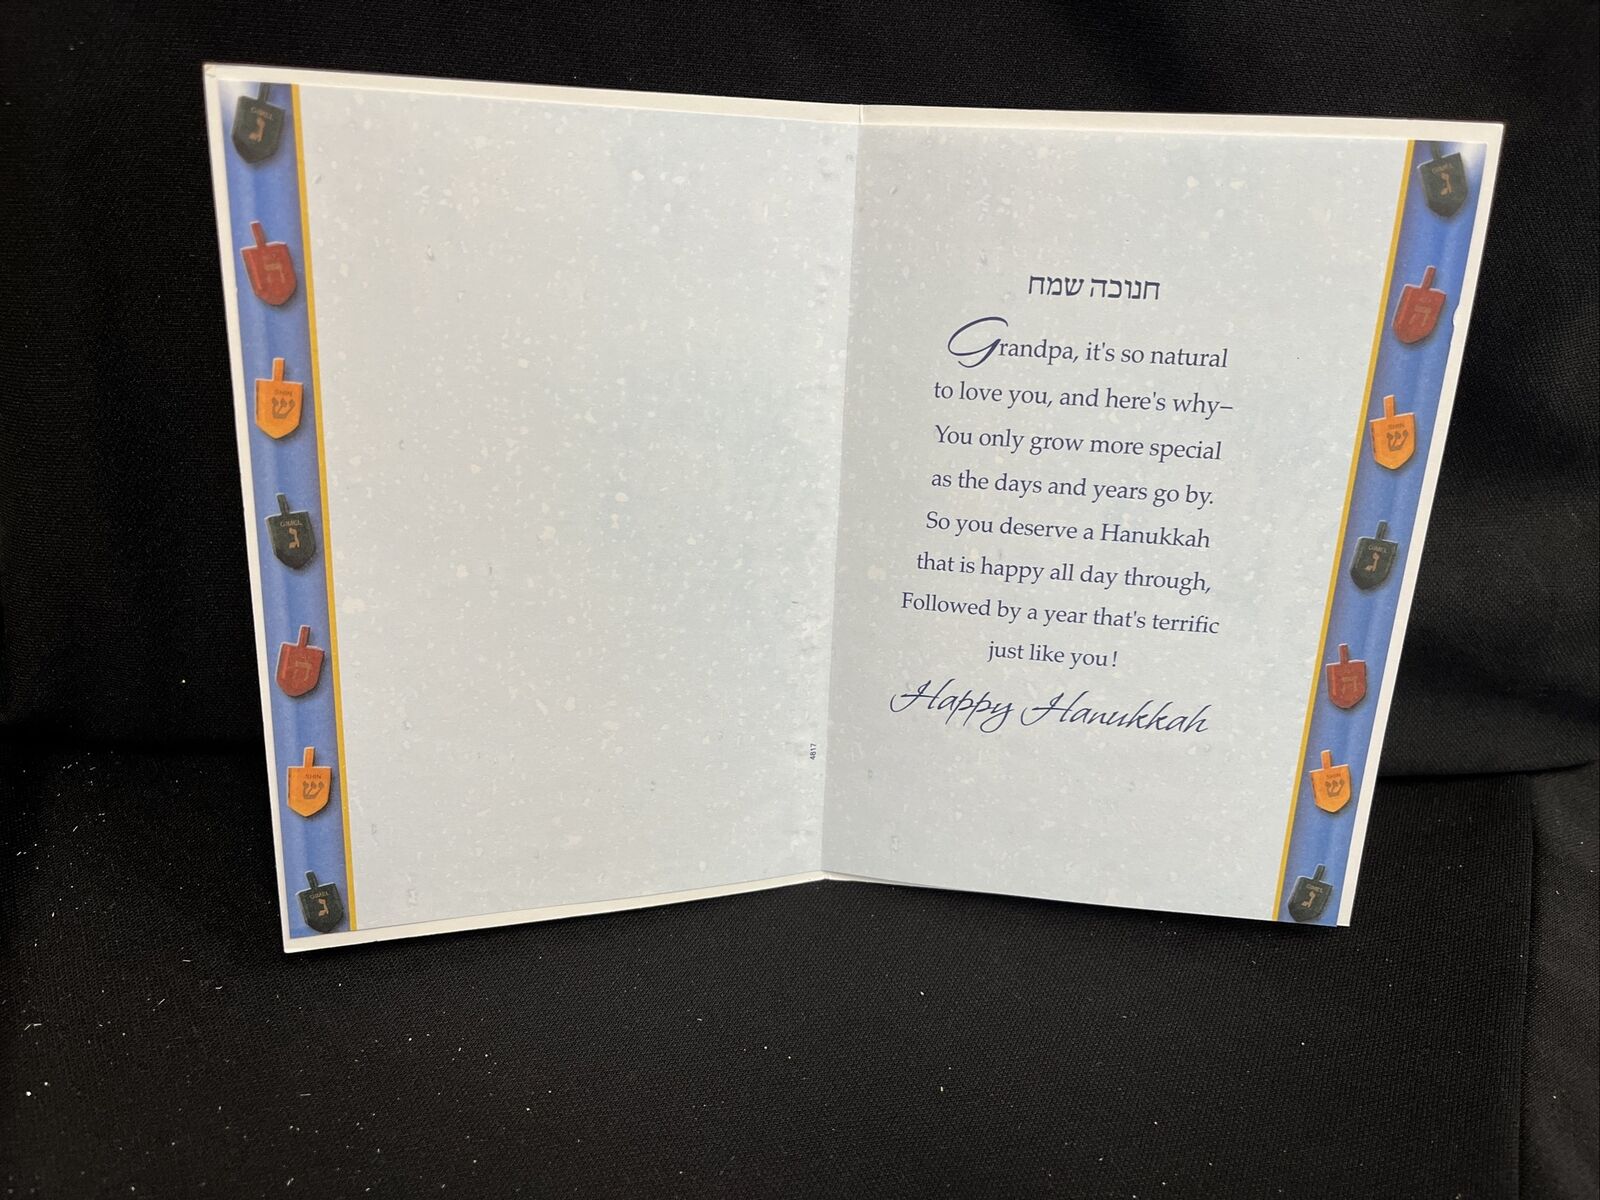 GIMEL
ג
ה
SHIN
ש
GIMEL
ג
ה
SHIN
ש
GIMEL
ג
4817
חנוכה שמח
Grandpa, it's so natural
to love you, and here's why–
You only grow more special
as the days and years go by.
So you deserve a Hanukkah
that is happy all day through,
Followed by a year that's terrific
just like you!
Happy Hanukkah
ג
ה
SHIN
ש
GIMEL
ג
ה
SHIN
ש
GIMEL
ג